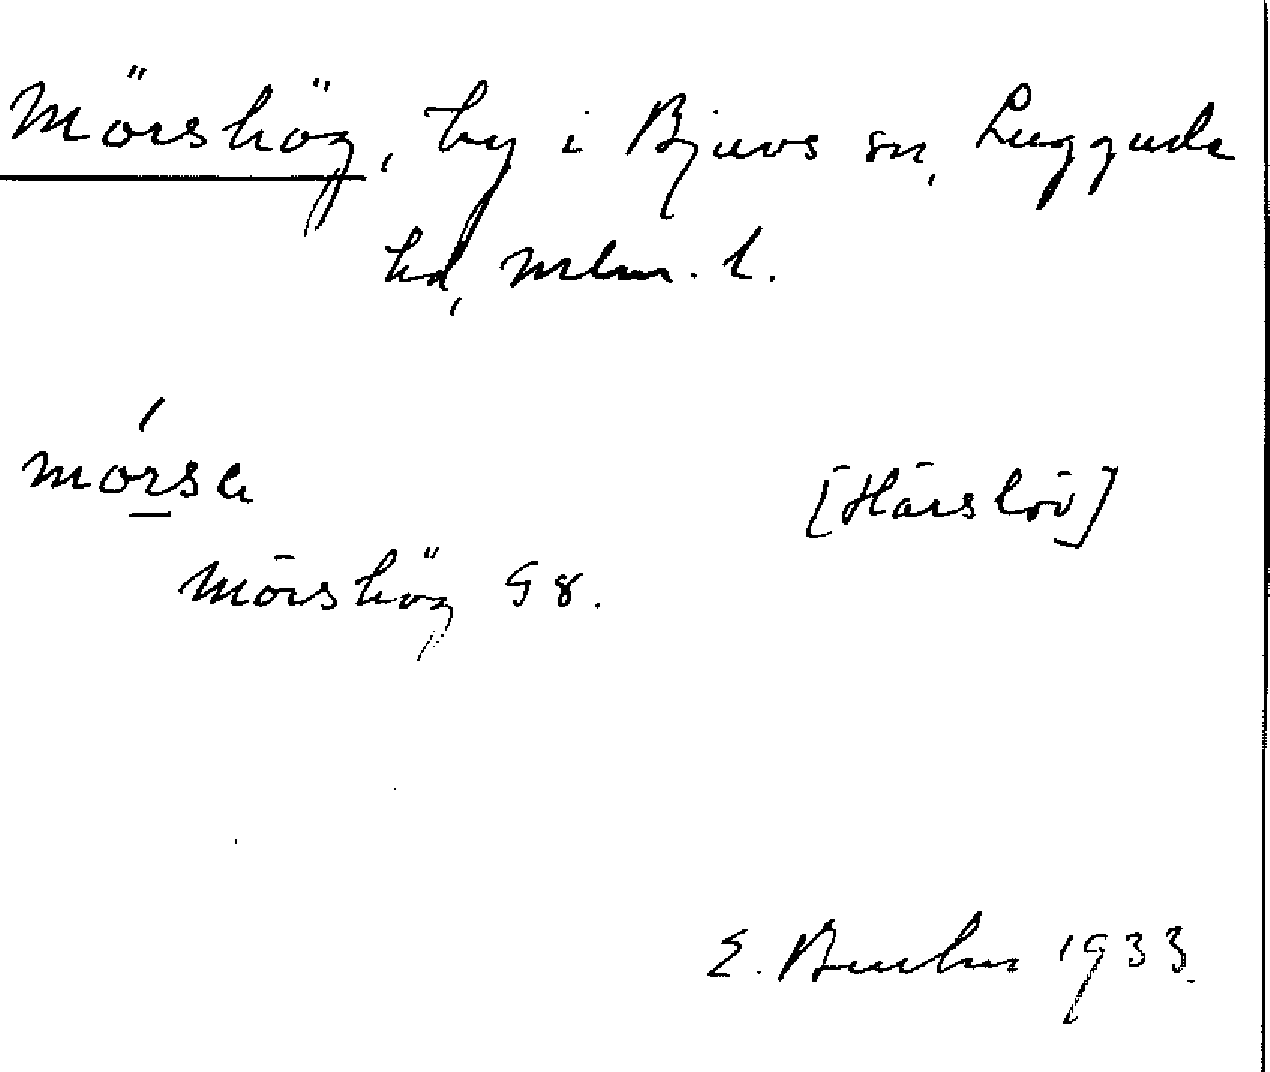 Mörshög, by i Bjuvs sn, Luggude
hd, Mlm. l.
mórsa [Härslöv]
Mörshög 98.
E. 1933.